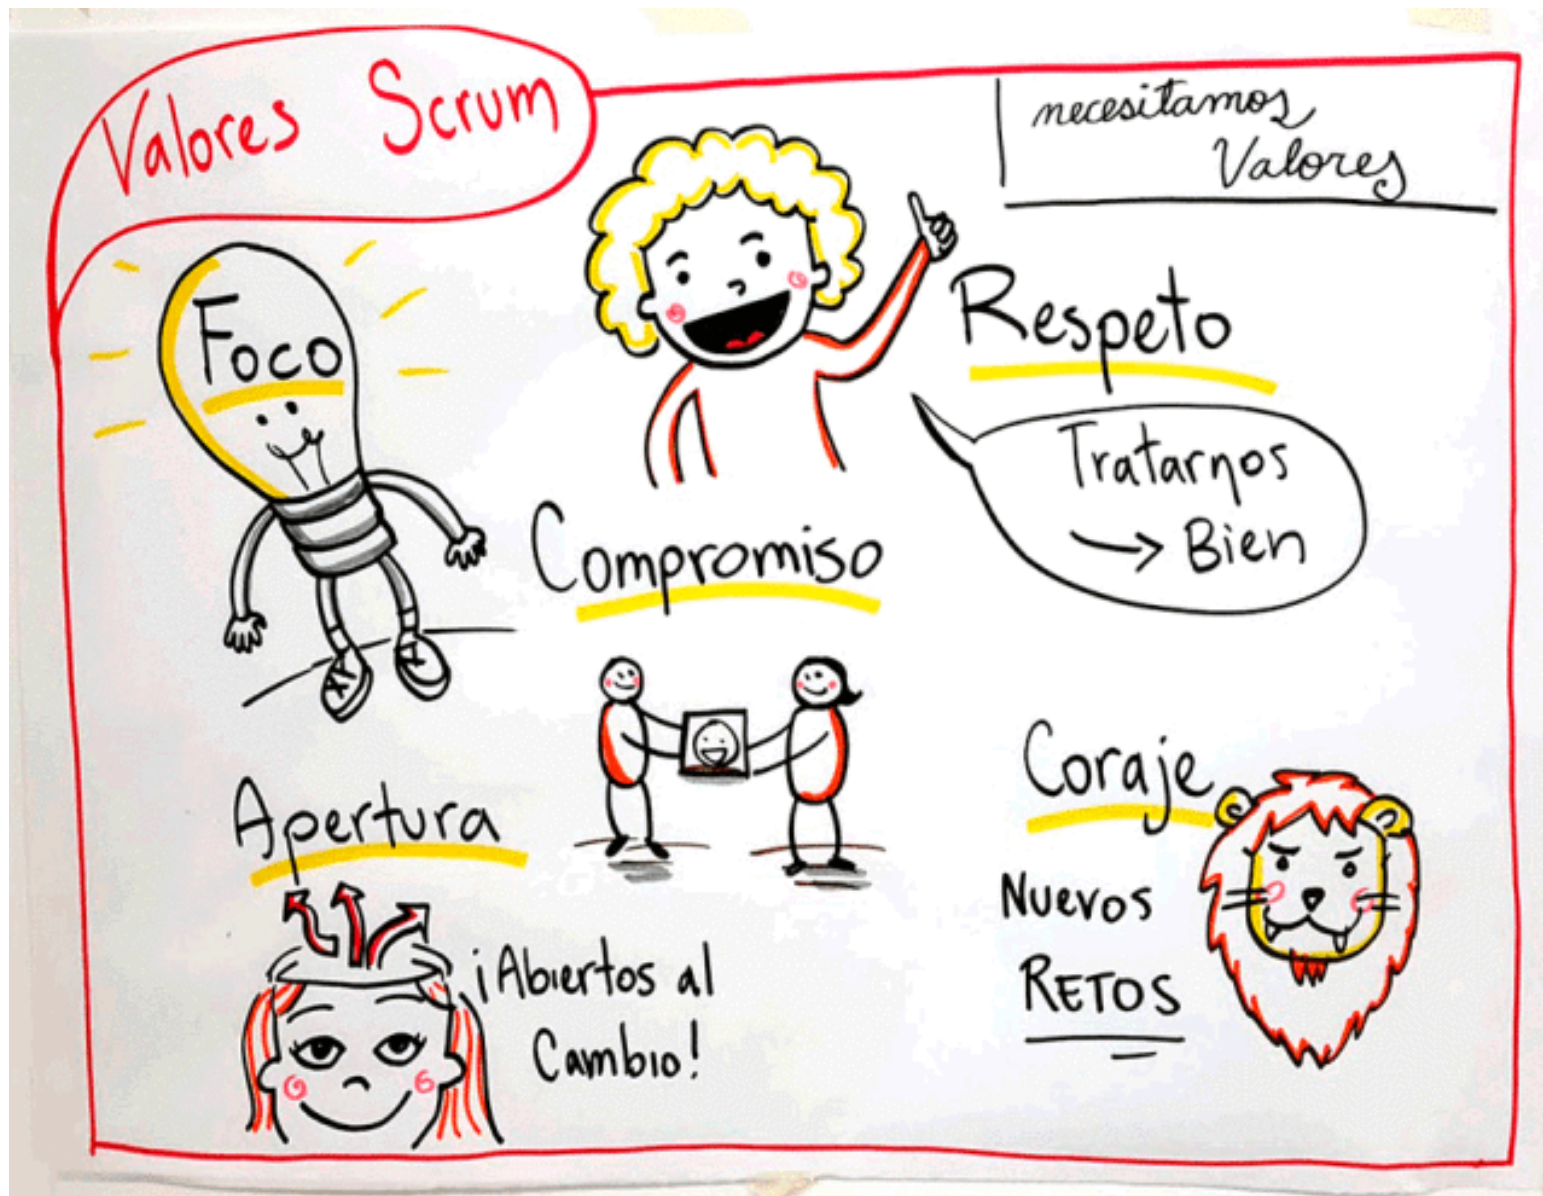 Valores Scrum
necesitamos
Valores
Foco
Respeto
Tratarnos
→ Bien
Compromiso
Apertura
¡Abiertos al
Cambio!
Coraje
Nuevos
RETOS